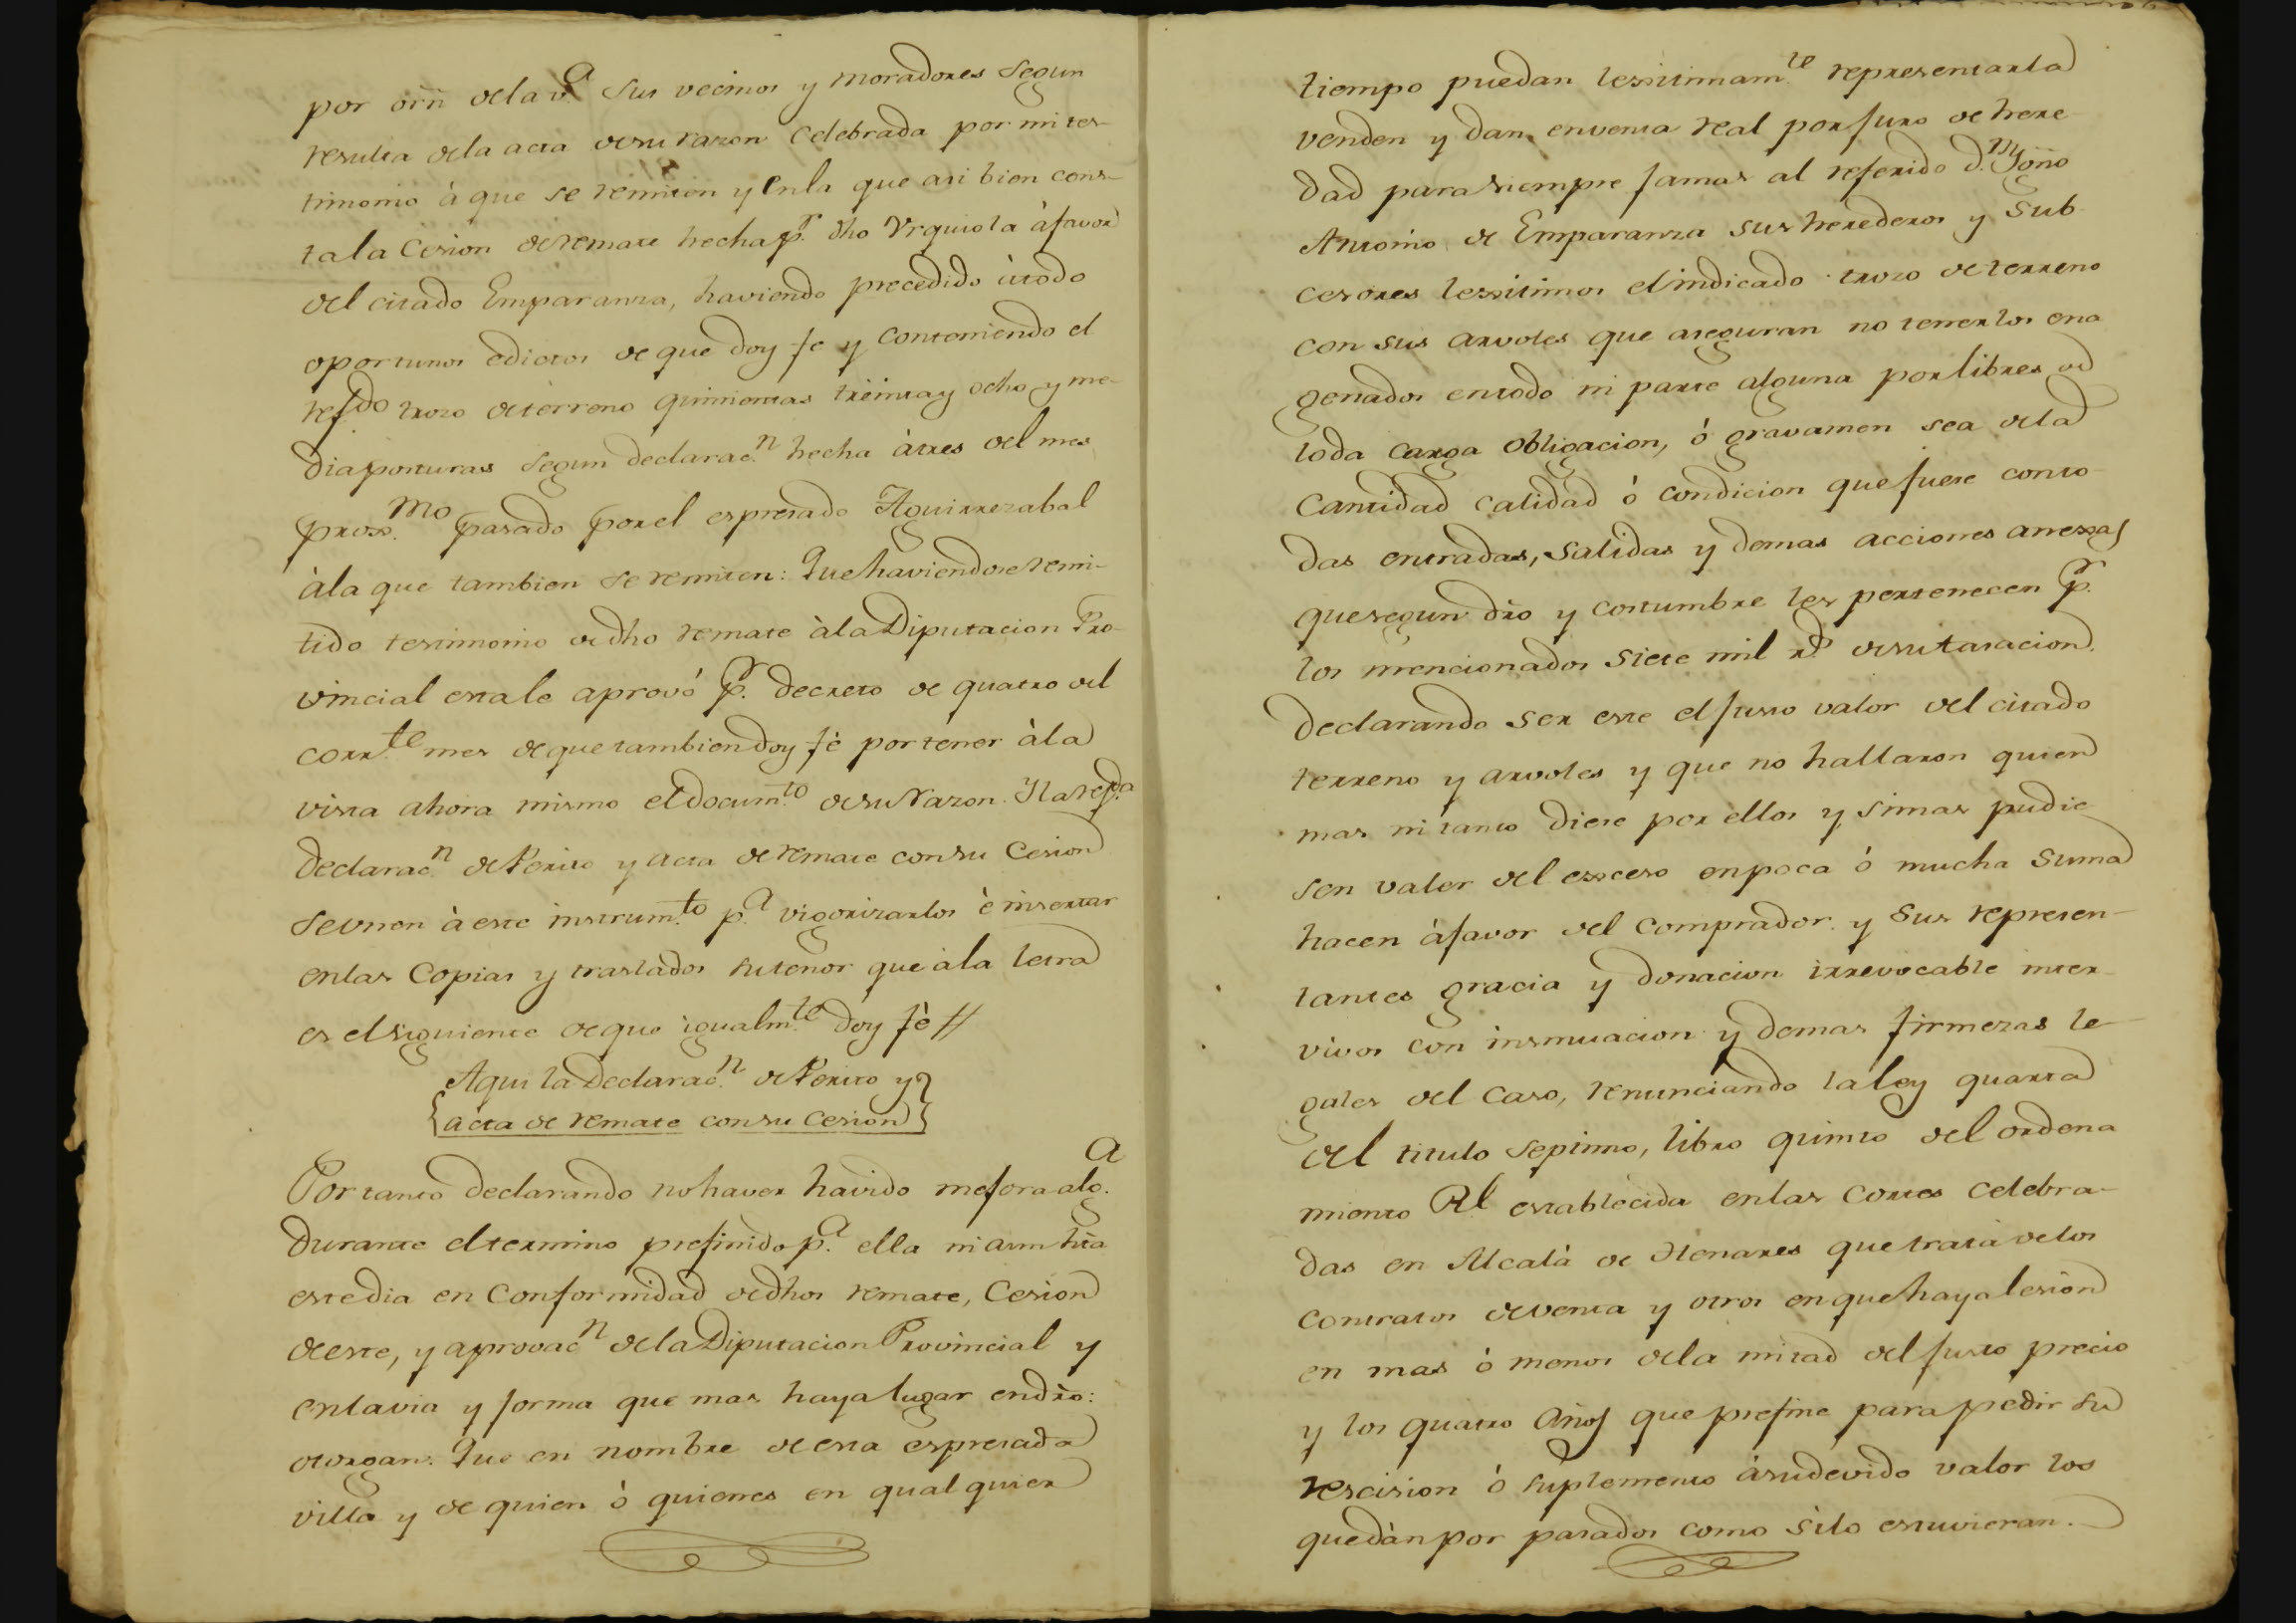 por orñ dela v.ª sus vecinos y moradores segun
resulta dela acta desu razon celebrada por mi tes-
timonio à que se remiten y enla que asi bien cons-
ta la Cesion deremate hecha p.r dho Urquiola àfavor
del citado Emparanza, haviendo precedido àtodo
oportunos edictos de que doy fe y conteniendo el
ref.do trozo deterreno quinientas treintay ocho y me-
dia posturas segun declarac.n hecha àtres del mes
prox.mo pasado porel espresado Aguirrezabal
àla que tambien se remiten: Quehaviendose remi-
tido testimonio dedho remate àla Diputacion Pro-
vincial estale aprovó p.r decreto de quatro del
corr.te mes dequetambiendoy fé por tener àla
vista ahora mismo eldocum.to desu razon. Ylaref.da
declarac.n dePerito y acta deremate consu Cesion
seunen àeste instrum.to p.a vigorizarlos è insertar
enlas Copias y traslados sutenor que ala letra
es elsiguiente deque igualm.te doy fè //
Aqui la Declarac.n dePerito y
acta de remate consu Cesion
Portanto declarando nohaver havido mejora alg.a
durante eltermino prefinido p.a ella ni aun hta
estedia en Conformidad dedhos remate, Cesion
deeste, y aprovac.n dela Diputacion Provincial y
enlavia y forma que mas hayalugar endro:
otorgan. Que en nombre deesta espresada
villa y de quien ò quienes en qualquier
tiempo puedan lexitimam.te representarla
venden y dan enventa real porjuro de here-
dad parasiempre jamas al referido d.n Yg.no
Antonio de Emparanza sus herederos y Sub-
cesores lexitimos elindicado trozo deterreno
con sus arvoles que aseguran no tenerlos ena-
genados entodo ni parte alguna porlibres de
toda carga obligacion, ó gravamen sea dela
Cantidad calidad ò condicion quefuese conto-
das entradas, salidas y demas acciones anexas
quesegun dro y costumbre les pertenecen p.r
los mencionados siete mil r.s desutasacion.
declarando ser este eljusto valor del citado
terreno y arvoles y que no hallaron quien
mas ni tanto diese por ellos y simas pudie-
sen valer del exceso enpoca ò mucha suma
hacen àfavor del comprador y sus represen-
tantes gracia y donacion irrevocable inter-
vivos con insinuacion y demas firmezas le-
gales del caso, renunciando laley quarta
del titulo septimo, libro quinto del ordena-
miento Rl establecida enlas Cortes celebra-
das en Alcalà de Henares quetrata delos
contratos deventa y otros enquehayalesion
en mas ò menos dela mitad deljusto precio
y los quatro años queprefine parapedir su
rescision ò suplemento asudevido valor los
quedànpor pasados como silo estuvieran.